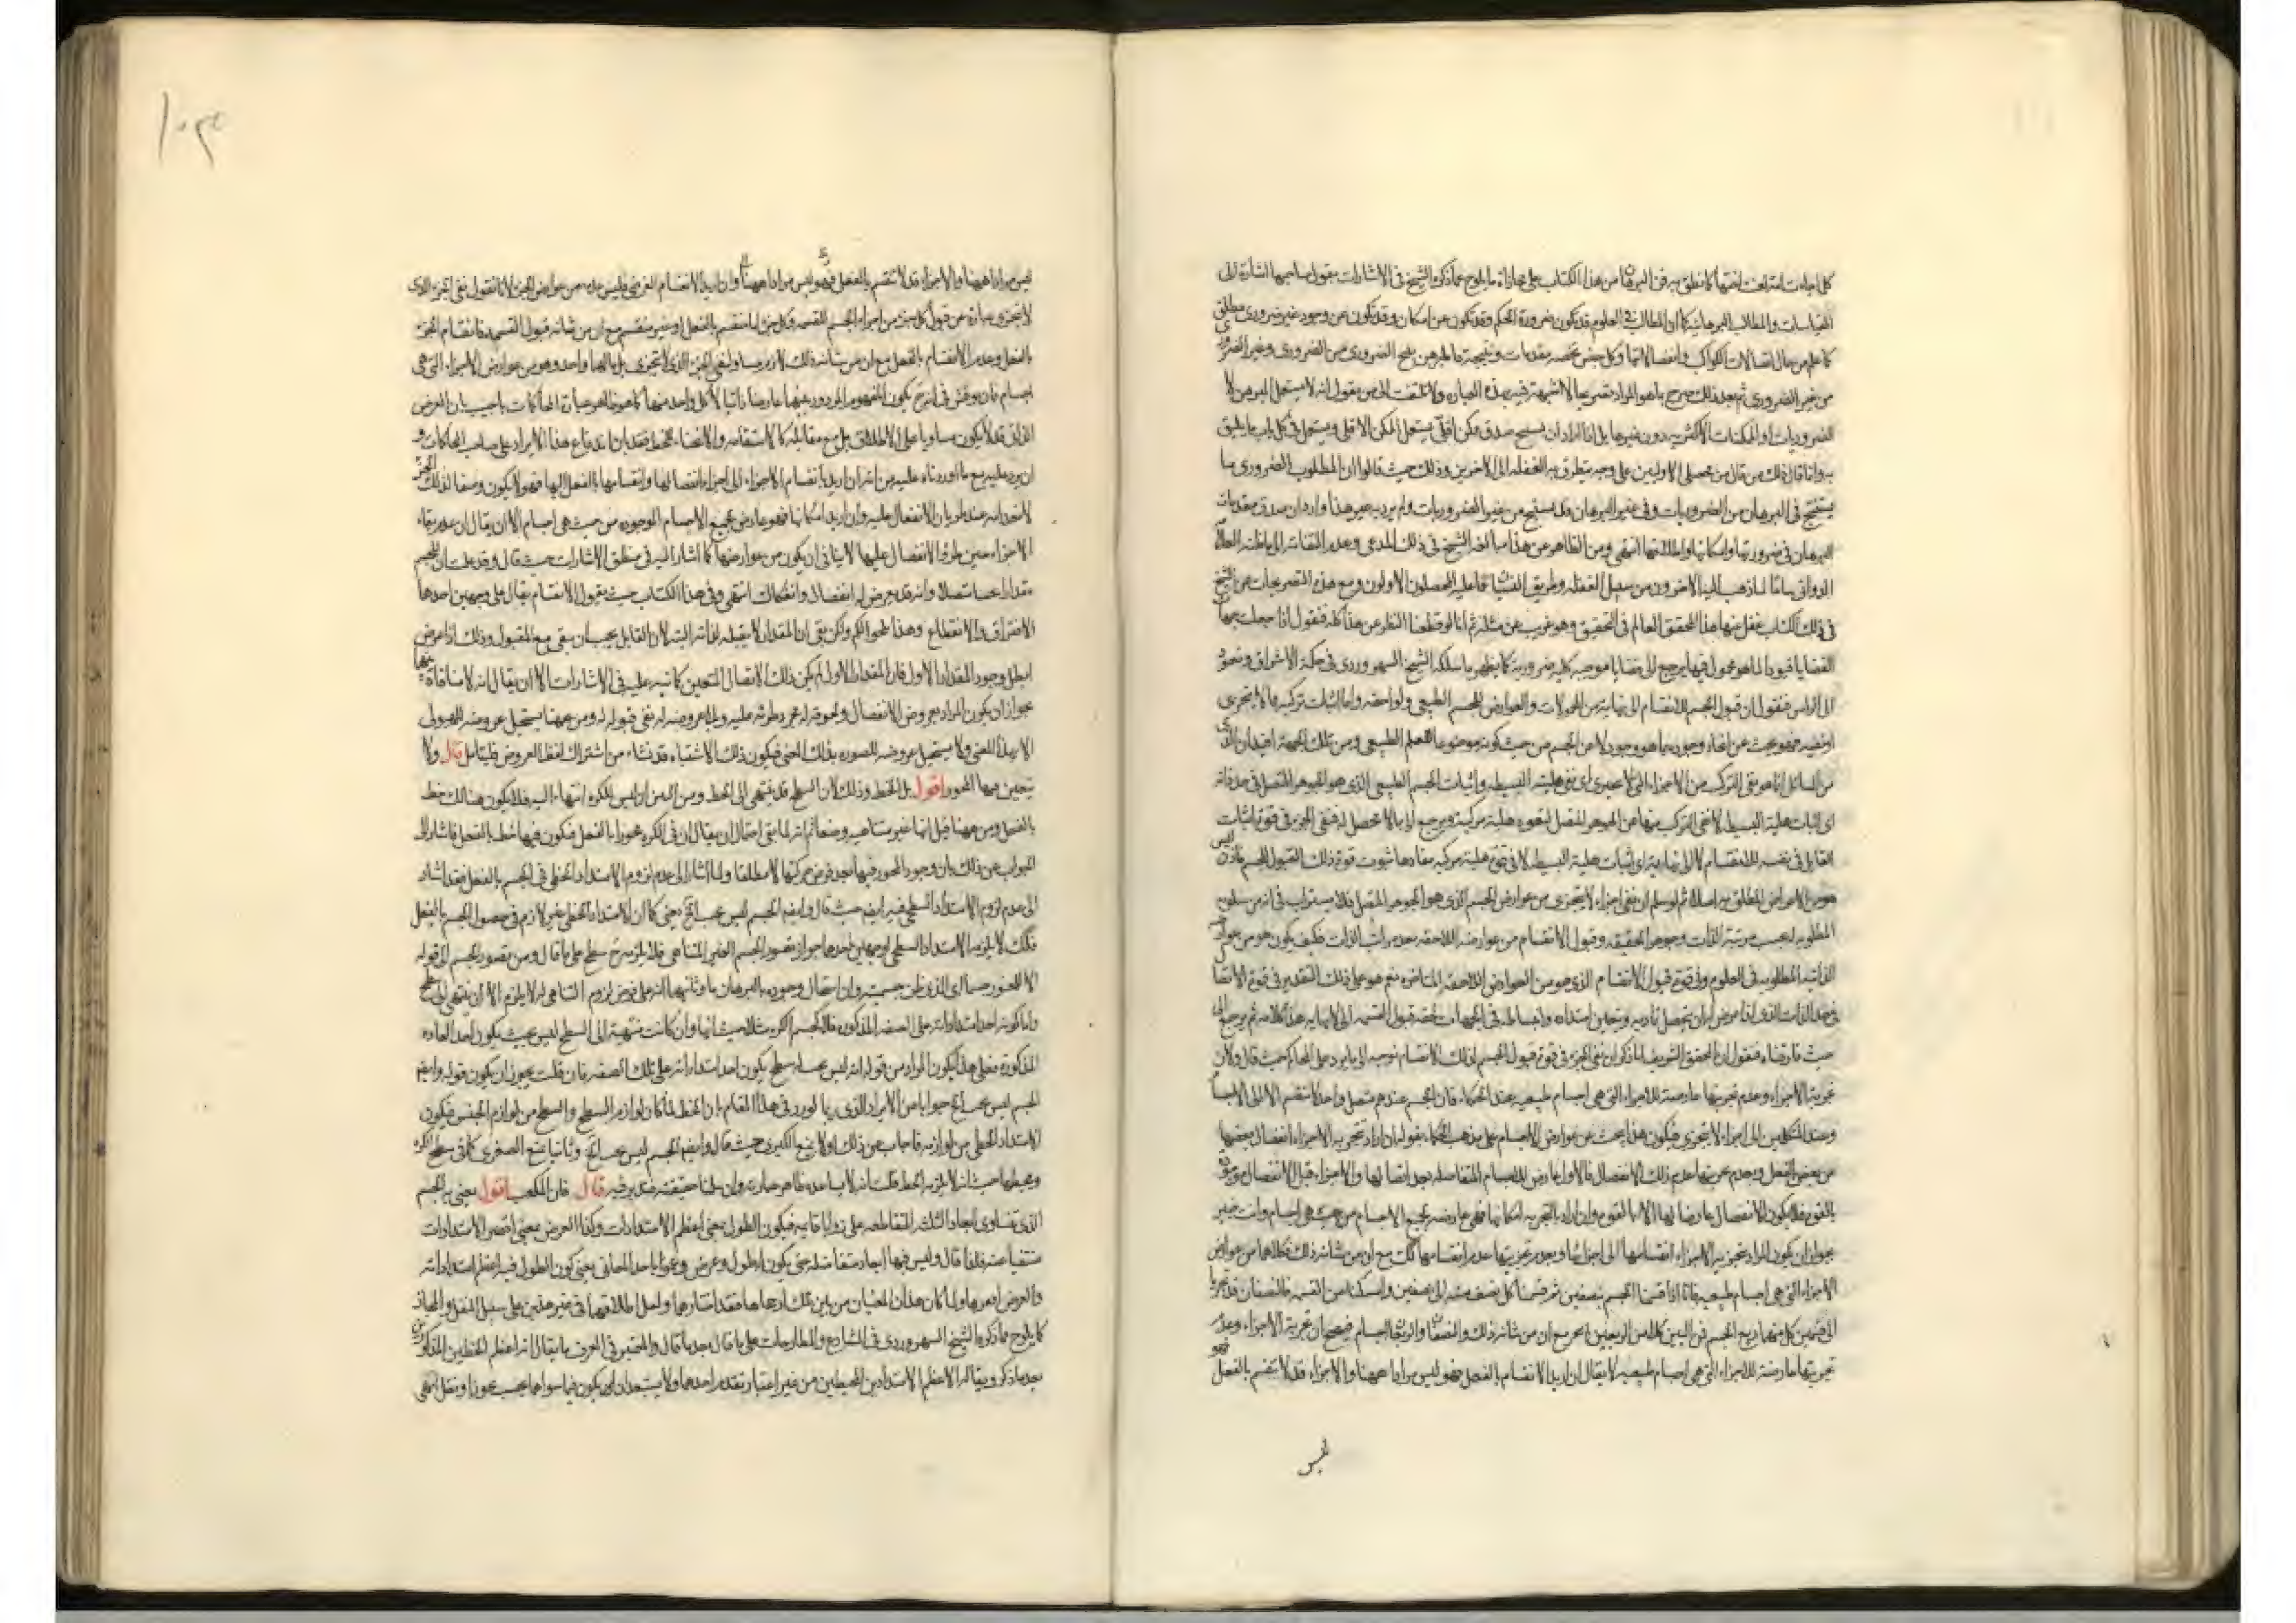 كل اجابات امتزاجت لفتها كما نطق به فن البرهان من هذا الكتاب على محاذاة ما يلوح مما ذكره الشيخ في الاشارات بقوله
القياسات والمطالب البرهانية كما ان المطالب في العلوم قد تكون عن ضرورة الحكم وقد تكون عن امكان وقد تكون عن وجود غير ضروري مطلق
كما علم من حال اتصالات الكواكب وانفصالاتها وكل جنس تخصه مقدمات ونتيجة فالمبرهن ينتج الضروري من الضروري وغير الضروري
من غير الضروري ثم بعد ذلك صرح بما هو المراد تصريحا لا شبهة فيه بهذه العبارة ولا تلتفت الى من يقول انه لا يستعمل المبرهن الا
الضروريات او الممكنات الاكثرية دون غيرها بل اذا اراد ان ينتج صدق ممكن اقلي يستعمل الممكن الاقلي ويستعمل في كل باب ما يليق
به وانما قال ذلك من قال من محصلي الاولين على وجه يتطرق به الغفلة الى الاخرين وذلك حيث قالوا ان المطلوب الضروري ما
يستنتج في البرهان من الضروريات وفي غير البرهان قد يستنتج من غير الضروريات ولم يرد به غير هذا او اراد ان صدق مقدمات
البرهان في ضرورتها وامكانها واطلاقها انتهى ومن الظاهر عن هذا مبالغة الشيخ في ذلك المدعى وعدم التفاته الى ما ظنه العلامة
الدواني لما ذهب اليه الاخرون من سبيل الغفلة وطريق عليه المحصلون الاولون ومع هذه التصريحات عن الشيخ
في ذلك الكتاب غفل عنها هذا المحقق العالم في التحقيق وهو غريب عن مثله ثم انا لو قطعنا النظر عن هذا كله فنقول اذا جعلت جهات
القضايا قيودا لما هو محمول فيها يرجع الى قضايا موجبة كلية ضرورية كما يظهر ما سلكه الشيخ السهروردي في حكمة الاشراق ونعود
الى الراس فنقول ان قبول الجسم للانقسام الى نهاية من المحمولات والعوارض للجسم الطبيعي ولواحقه واما اثبات تركبه مما لا يتجزى
او نفيه فهو بحث عن انحاء وجوده بما هو وجود لا عن الجسم من حيث كونه موضوعا للعلم الطبيعي ومن تلك الجهة افيد ان
من المسائل انما هو نفي التركب من الاجزاء التي لا تتجزى اي نفي هليته البسيطة واثبات الجسم الطبيعي الذي هو الجوهر المتصل في حد ذاته
اي اثبات هليته البسيطة لا نفي التركب منها عن الجوهر المتصل ليعود هلية مركبة ويرجع الى ما لا محصل له فنفي الجزء في قوة اثبات
القابل في نفسه للانقسام لا الى نهاية اي اثبات هليته البسيطة لا في قوة هلية مركبة مفادها ثبوت قوة ذلك القبول للجسم فاذن ليس
هو من الاعراض المطلق به اصلا ثم لو سلم ان نفي اجزاء لا تتجزى من عوارض الجسم الذي هو الجوهر المتصل فلا يستراب في انه من سلوب
المطلوبة له بحسب مرتبة الذات وجوهر الحقيقة وقبول الانقسام من عوارضه اللاحقة بعد مراتب الذات فكيف يكون هو من عوارضه
الذاتية المطلوبة في العلوم وفي قوة قبول الانقسام الذي هو من العوارض اللاحقة المتاخرة نعم هو على ذلك التقدير في قوة الاتصال
في حد الذات الذي اذا فرض ان يتحصل تماديه ويتعين امتداده وانبساطه في الجهات لحقه قبول القسمة الى لا نهاية هذا كلامه ثم نرجع الى
حيث فارقناه فنقول ان المحقق الشريف لما ذكر ان نفي الجزء في قوة قبول الجسم لذلك الانقسام توجه الى ما يورد على المحاكم حيث قال ولان
تجزية الاجزاء وعدم تجزيتها عارضة للاجزاء التي هي اجسام طبيعية عند الحكماء فان الجسم عندهم متصل واحد لا تنقسم الا الى الاجسام
وعند المتكلمين الى اجزاء لا تتجزى فيكون هذا بحث عن عوارض الاجسام على مذهب الحكماء بقوله ان اراد بتجزية الاجزاء انفصال بعضها
من بعض بالفعل وبعدم تجزيتها عدم ذلك الانفصال فالاول عارض للاجسام المتفاصلة بعد اتصالها والاجزاء قبل الانفصال موجودة
بالقوة فلا يكون الانفصال عارضا لها الا بالقوة وان اراد بالتجزية امكانها فهي عارضة لجميع الاجسام من حيث هي اجسام وانت خبير
بجواز ان يكون المراد بتجزية الاجزاء انقسامها الى اجزائها وبعدم تجزيتها عدم انقسامها كك مع ان من شانه ذلك فكلاهما من عوارض
الاجزاء التي هي اجسام طبيعية فانا اذا قسمنا الجسم بنصفين ثم قسمنا كل نصف منه الى نصفين وامسكنا من القسمة فالنصفان قد تجزيا
الى قسمين كل منهما ربع الجسم فمن البين كلا من الربعين لم يتجز مع ان من شانه ذلك والنصفان والربعان اجسام فيصح ان تجزية الاجزاء وعدم
تجزيتها عارضة للاجزاء التي هي اجسام طبيعية لا يقال ان اريد الانقسام بالفعل فهو ليس مرادا ههنا والاجزاء قد لا تنقسم بالفعل فهو
ليس
ليس مرادا ههنا والاجزاء قد لا تنقسم بالفعل فهو ليس مرادا ههنا وان اريد الانقسام الفرضي فليس عدمه من عوارض الجزء لانا نقول نفي الجزء الذي
لا يتجزى عبارة عن قبول كل جزء من اجزاء الجسم للقسمة وكل جزء اما منقسم بالفعل او غير منقسم مع ان من شانه قبول القسمة فانقسام الجزء
بالفعل وعدم الانقسام بالفعل مع ان من شانه ذلك لازم مساو لنفي الجزء الذي لا يتجزى بل مآلهما واحد وهو من عوارض الاجزاء التي هي
اجسام فان نوقش في انه ح يكون المفهوم المردد بينهما عارضا ذاتيا لا كل واحد منهما كما هو ظاهر عبارة المحاكمات يجاب بان العرض
الذاتي قد لا يكون مساويا على الاطلاق بل مع مقابله كالاستقامة والانحناء للخط فقد بان اندفاع هذا الايراد على صاحب المحاكمات و
ان يرد عليه مع ما اوردناه عليه من انه ان اريد بانقسام الاجزاء الى اجزاء انفصالها وانقسامها بالفعل اليها فهو لا يكون وصفا لذلك الجزء
لانعدامه عند طريان الانفصال عليه وان اريد امكانها فهو عارض لجميع الاجسام الموجودة من حيث هي اجسام الا ان يقال ان عدم بقاء
الاجزاء حين طرو الانفصال عليها لا ينافي ان يكون من عوارضها كما اشار اليه في منطق الاشارات حيث قال وقد علمت ان للجسم
مقدارا متصلا وانه قد يعرض له انفصال وانفكاك انتهى وفي هذا الكتاب حيث يقول الانقسام يقال على وجهين احدهما
الافتراق والانقطاع وهذا يلحق الكم ولكن بقي ان المقدار لا يقبله لذاته البتة لان القابل يجب ان يبقى مع المقبول وذلك اذا عرض
ابطل وجود المقدار الاول فان المقدار الاول لم يكن ذلك الاتصال المتعين كما نبه عليه في الاشارات الا ان يقال انه لا منافاة بينهما
بجواز ان يكون المراد بعروض الانفصال ولحوقه له مجرد طرئه عليه وبعدم عروضه له نفي قبوله له ومن ههنا يستحيل عروضه للهيولى
الا بهذا المعنى ولا يستحيل عروضه للصورة بذلك المعنى فيكون ذلك الاشتباه قد نشاء من اشتراك لفظ العروض فليتامل قال ولا
يتعين فيها المحور اقول بل الخط وذلك لان السطح قد ينتهي الى الخط ومن البين ان ليس للكرة انتهاء اليه فلا يكون هنالك خط
بالفعل ومن ههنا قيل انها غير متناهية وضعا ثم انه لما بقي احتمال ان يقال ان في الكرة محورا بالفعل فيكون فيها خط بالفعل فاشار الى
الجواب عن ذلك بان وجود المحور فيها بعد فرض حركتها لا مطلقا ولما اشار الى عدم لزوم الامتداد الخطي في الجسم بالفعل فقد اشار
الى عدم لزوم الامتداد السطحي فيه ايضا حيث قال وايضا الجسم ليس يجب الخ يعني كما ان الامتداد الخطي غير لازم في حصول الجسم بالفعل
فكذلك لا يلزمه الامتداد السطحي لوجهين احدهما جواز تصور الجسم الغير المتناهي فلا يلزم ح سطح على ما قال ومن تصور الجسم الى قوله
الا للمتصور جسما اي الذي ظن جسميته وان استحال وجوده بالبرهان وثانيهما انه على فرض لزوم التناهي له لا يلزم الا ان ينتهي الى سطح
واما كونه احد امتداداته على الصفة المذكورة فلا كجسم الكرة مثلا حيث انها وان كانت منتهية الى السطح ليس بحيث يكون احد ابعاده
المذكورة فعلى هذا يكون المراد من قوله انه ليس يجب سطح يكون احد امتداداته على تلك الصفة فان قلت يجوز ان يكون قوله وايضا
الجسم ليس يجب الخ جوابا من الايراد الذي ربما يورد في هذا المقام بان الخط لما كان لوازم السطح والسطح من لوازم الجسم فيكون
الامتداد الخطي من لوازمه فاجاب عن ذلك اولا بمنع الكبرى حيث قال وايضا الجسم ليس يجب الخ وثانيا بمنع الصغرى كما في سطح الكرة
ومحيطها حيث انه لا يلزمه الخط قلت انه لا يساعده ظاهر عبارته وان حقيقته فتدبر فيه قال فان المكعب اقول يعني به الجسم
الذي تساوى ابعاده الثلثة المتقاطعة على زوايا قائمة فيكون الطول بمعنى اعظم الامتدادات وكذا العرض بمعنى اقصر الامتدادات
منتفيا عنه فلذا قال وليس فيها ابعاد متفاضلة حتى يكون له طول وعرض وعمق باحد المعاني يعني كون الطول فيه اعظم امتداداته
والعرض اقصرها ولما كان هذان المعنيان من بين تلك ارجاعها فقد اختارهما ولعل اطلاقهما في غير هذين على سبيل النقل والمجاز
كما يلوح مما ذكره الشيخ السهروردي في المشارع والمطارحات على ما قال بعد ما قال والمعتبر في العرف ما يقال انه اعظم الخطين المذكورين
بعد ما ذكر ويقال له الاعظم الامتدادين المحيطين من غير اعتبار تقدم احدهما ولا يستبعد ان يكون فيما سواهما بحسب تجوز او نقل انتهى